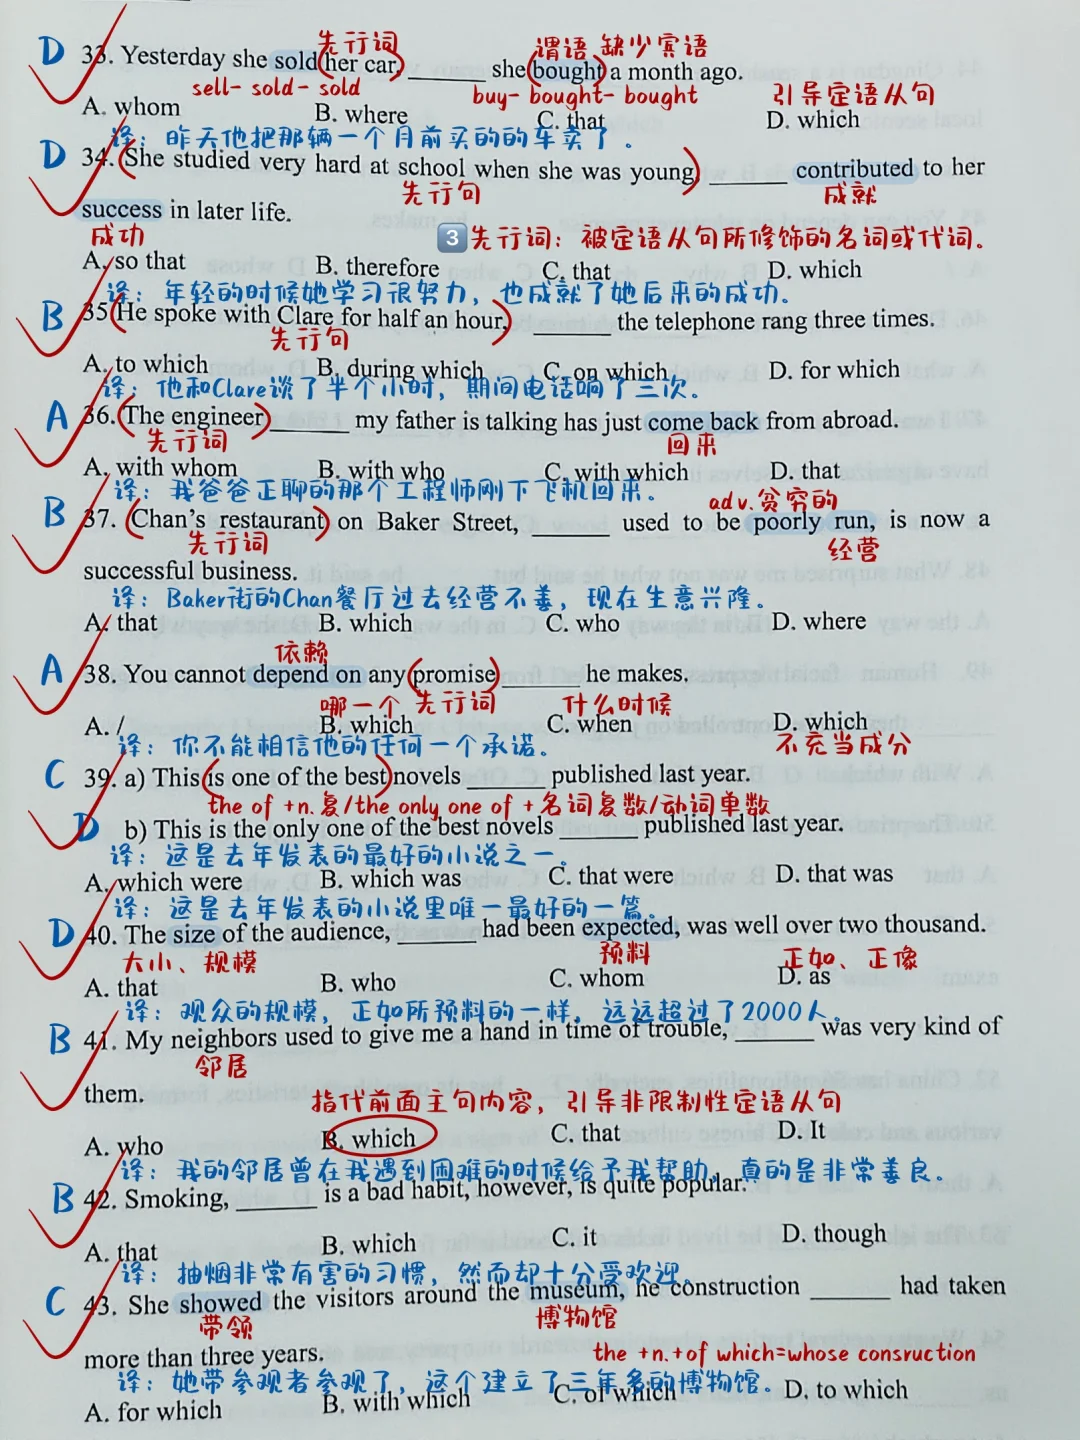 D 33. Yesterday she sold her car, ______ she bought a month ago.
先行词 谓语 缺少宾语
sell- sold- sold buy- bought- bought 引导定语从句
A. whom B. where C. that D. which
译：昨天他把那辆一个月前买的的车卖了。
D 34. She studied very hard at school when she was young, ______ contributed to her
先行句 成就
success in later life.
成功 3 先行词：被定语从句所修饰的名词或代词。
A. so that B. therefore C. that D. which
译：年轻的时候她学习很努力，也成就了她后来的成功。
B 35 He spoke with Clare for half an hour, ______ the telephone rang three times.
先行句
A. to which B. during which C. on which D. for which
译：他和Clare谈了半个小时，期间电话响了三次。
A 36. The engineer ______ my father is talking has just come back from abroad.
先行词 回来
A. with whom B. with who C. with which D. that
译：我爸爸正聊的那个工程师刚下飞机回来。
adv.贫穷的
B 37. Chan's restaurant on Baker Street, ______ used to be poorly run, is now a
先行词 经营
successful business.
译：Baker街的Chan餐厅过去经营不善，现在生意兴隆。
A. that B. which C. who D. where
依赖
A 38. You cannot depend on any promise ______ he makes.
哪一个 先行词 什么时候
A. / B. which C. when D. which
不充当成分
译：你不能相信他的任何一个承诺。
C 39. a) This is one of the best novels ______ published last year.
the of +n.复/the only one of +名词复数/动词单数
D b) This is the only one of the best novels ______ published last year.
译：这是去年发表的最好的小说之一。
A. which were B. which was C. that were D. that was
译：这是去年发表的小说里唯一最好的一篇。
D 40. The size of the audience, ______ had been expected, was well over two thousand.
大小、规模 预料 正如、正像
A. that B. who C. whom D. as
译：观众的规模，正如所预料的一样，远远超过了2000人。
B 41. My neighbors used to give me a hand in time of trouble, ______ was very kind of
邻居
them.
指代前面主句内容，引导非限制性定语从句
A. who B. which C. that D. It
译：我的邻居曾在我遇到困难的时候给予我帮助，真的是非常善良。
B 42. Smoking, ______ is a bad habit, however, is quite popular.
A. that B. which C. it D. though
译：抽烟非常有害的习惯，然而却十分受欢迎。
C 43. She showed the visitors around the museum, he construction ______ had taken
带领 博物馆
more than three years. the +n.+of which=whose consruction
译：她带参观者参观了，这个建立了三年多的博物馆。
A. for which B. with which C. of which D. to which